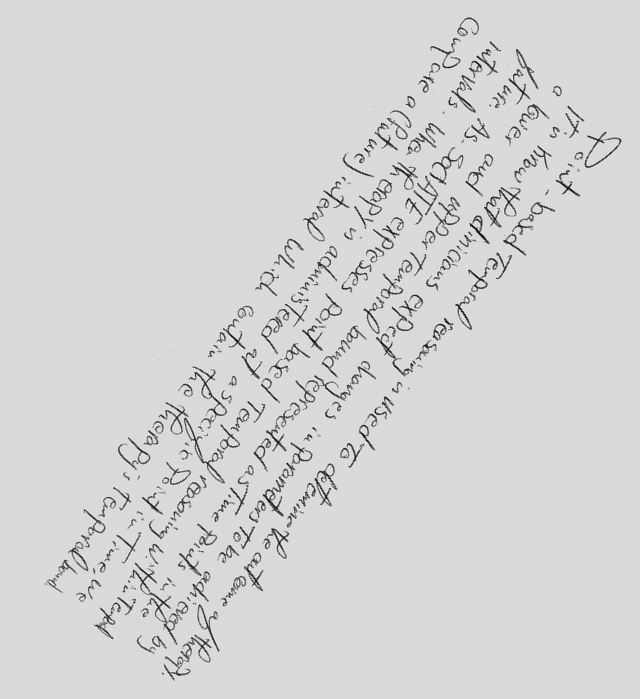 Point-based Temporal reasoning is used to determine the outcome of therapy.
It is know that clinicians expect changes in parameters to be achieved by
a lower and upper Temporal bound represented as Time points in the
future. As SOCIATE expresses point based Temporal reasoning within Temporal
intervals. When therapy is administered at a specific point in Time, we
Compare a (future) interval which contain the therapy's temporal bound